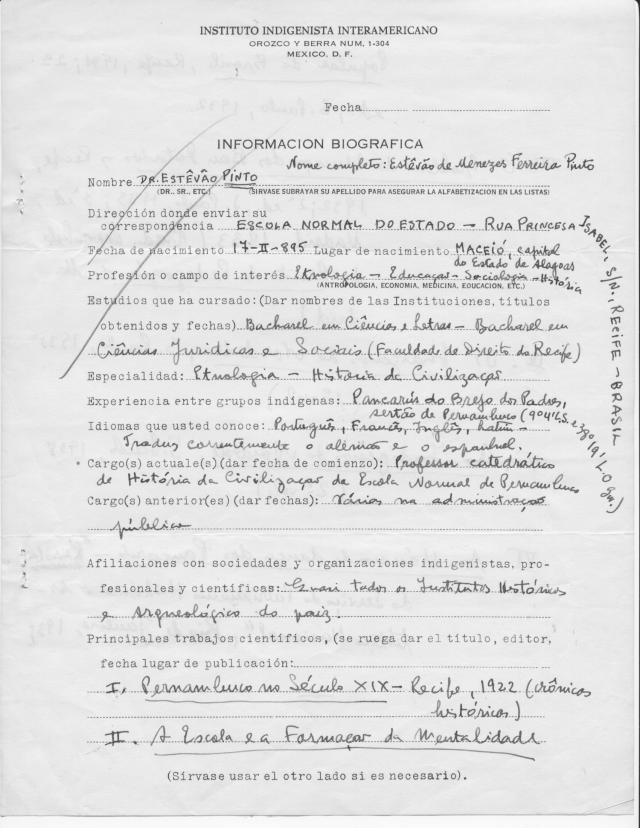 INSTITUTO INDIGENISTA INTERAMERICANO
OROZCO Y BERRA NUM. 1-304
MEXICO, D. F.
Fecha
INFORMACION BIOGRAFICA
Nome completo: Estêvão de Menezes Ferreira Pinto
Nombre DR. ESTÊVÃO PINTO
(DR., SR., ETC.) (SIRVASE SUBRAYAR SU APELLIDO PARA ASEGURAR LA ALFABETIZACION EN LAS LISTAS)
Dirección donde enviar su
correspondencia ESCOLA NORMAL DO ESTADO — RUA PRINCESA
ISABEL, S/N., RECIFE – BRASIL
Fecha de nacimiento 17-II-895 Lugar de nacimiento MACEIÓ, capital
do Estado de Alagoas
Profesión o campo de interés Etnologia — Educaçao — Sociologia — História
(ANTROPOLOGIA, ECONOMIA, MEDICINA, EDUCACION, ETC.)
Estudios que ha cursado: (Dar nombres de las Instituciones, títulos
obtenidos y fechas) Bacharel em Ciências e Letras — Bacharel em
Ciências Jurídicas e Sociais (Faculdade de Direito do Recife)
Especialidad: Etnologia — Historia da Civilizaçao
Experiencia entre grupos indígenas: Pancarús do Brejo dos Padres,
sertão de Pernambuco (9º04' L.S. e 38º19' L.O. Gr.)
Idiomas que usted conoce: Português, Francês, Inglês, Latim —
Traduz correntemente o alemão e o espanhol.
Cargo(s) actuale(s) (dar fecha de comienzo): Professor catedrático
de História da Civilizaçao da Escola Normal de Pernambuco
Cargo(s) anterior(es) (dar fechas): Vários na administraçao
pública
Afiliaciones con sociedades y organizaciones indigenistas, pro-
fesionales y científicas: Quasi todos os Institutos Históricos
e Arqueológico do paiz.
Principales trabajos científicos, (se ruega dar el título, editor,
fecha lugar de publicación:
I. Pernambuco no Século XIX — Recife, 1922 (crônicas
históricas)
II. A Escola e a Formaçao da Mentalidade
(Sírvase usar el otro lado si es necesario).